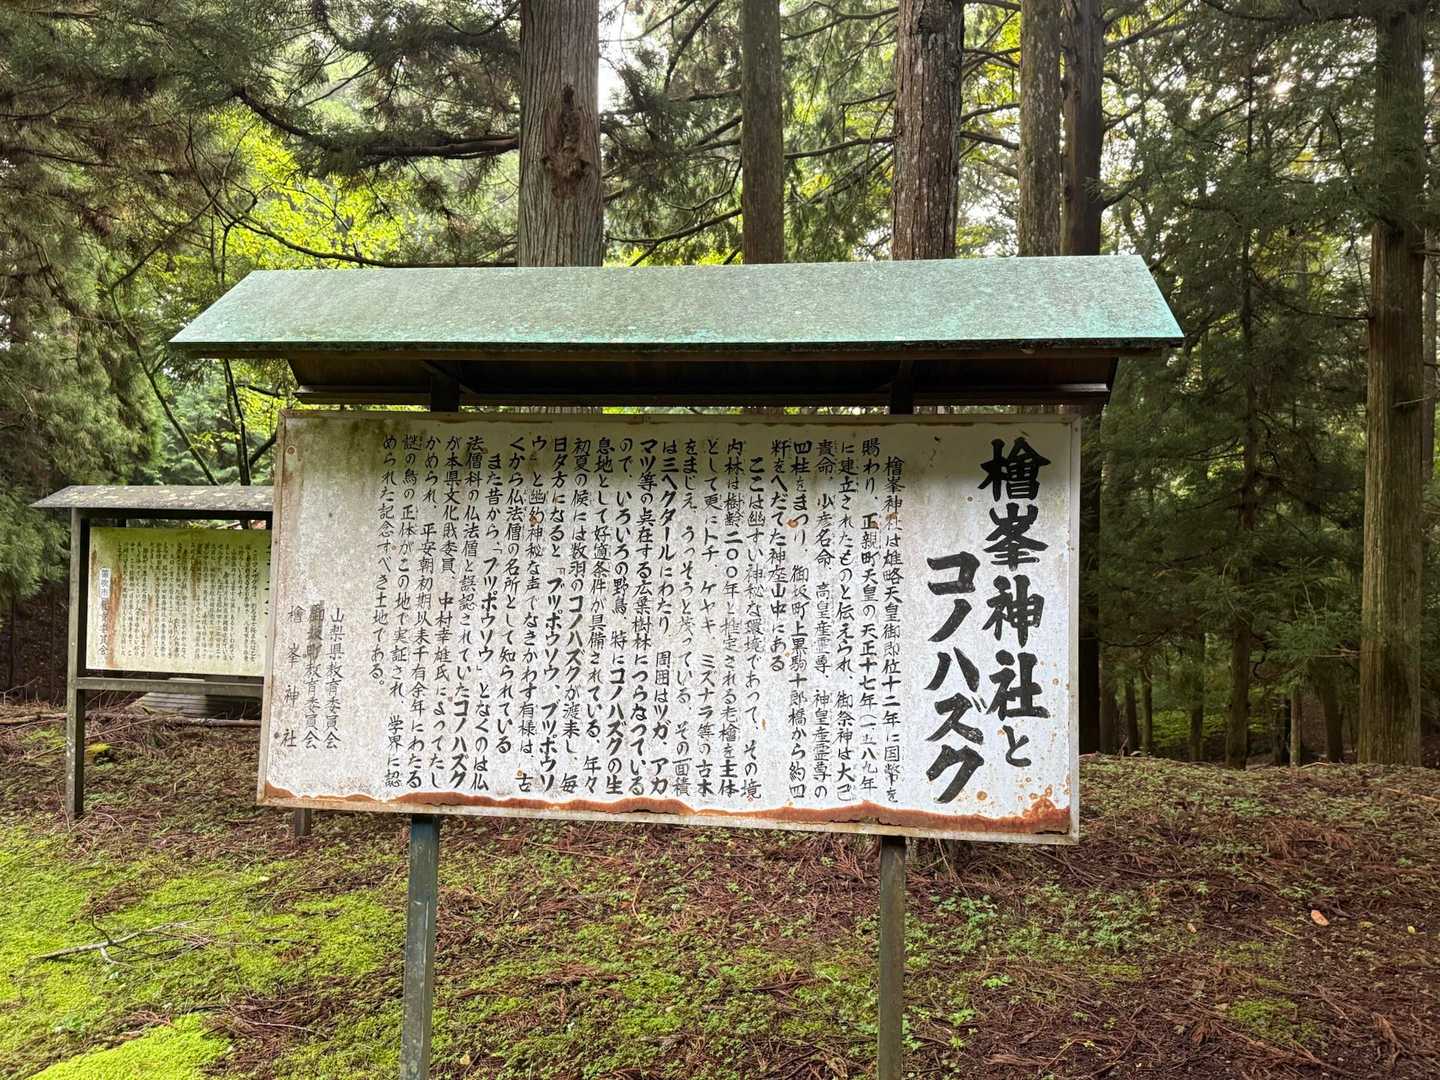 檜峯神社と
コノハズク
檜峯神社は雄略天皇御即位十二年に国幣を
賜わり、正親町天皇の天正十七年(一五八九年
に建立されたものと伝えられ、御祭神は大己
貴命、少彦名命、高皇産霊尊、神皇産霊尊の
四柱をまつり、御坂町上黒駒十郎橋から約四
粁をへだてた神座山中にある
ここは幽すい神秘な環境であって、その境
内林は樹齢二〇〇年と推定される老檜を主体
として更にトチ、ケヤキ、ミズナラ等の古木
をまじえ、うっそうと茂っている、その面積
は三ヘクタールにわたり、周囲はツガ、アカ
マツ等の点在する広葉樹林につらなっている
ので、いろいろの野鳥、特にコノハズクの生
息地として好適条件が具備されている、年々
初夏の候には数羽のコノハズクが渡来し、毎
日夕方になると「ブツポウソウ、ブツポウソ
ウ」と幽幼神秘な声でなきかわす有様は、古
くから仏法僧の名所として知られている
また昔から「ブツポウソウ」となくのは仏
法僧科の仏法僧と誤認されていたコノハズク
が本県文化財委員、中村幸雄氏によってたし
かめられ、平安朝初期以来千有余年にわたる
謎の鳥の正体がこの地で実証され、学界に認
められた記念すべき土地である。
山梨県教育委員会
御坂町教育委員会
檜峯神社